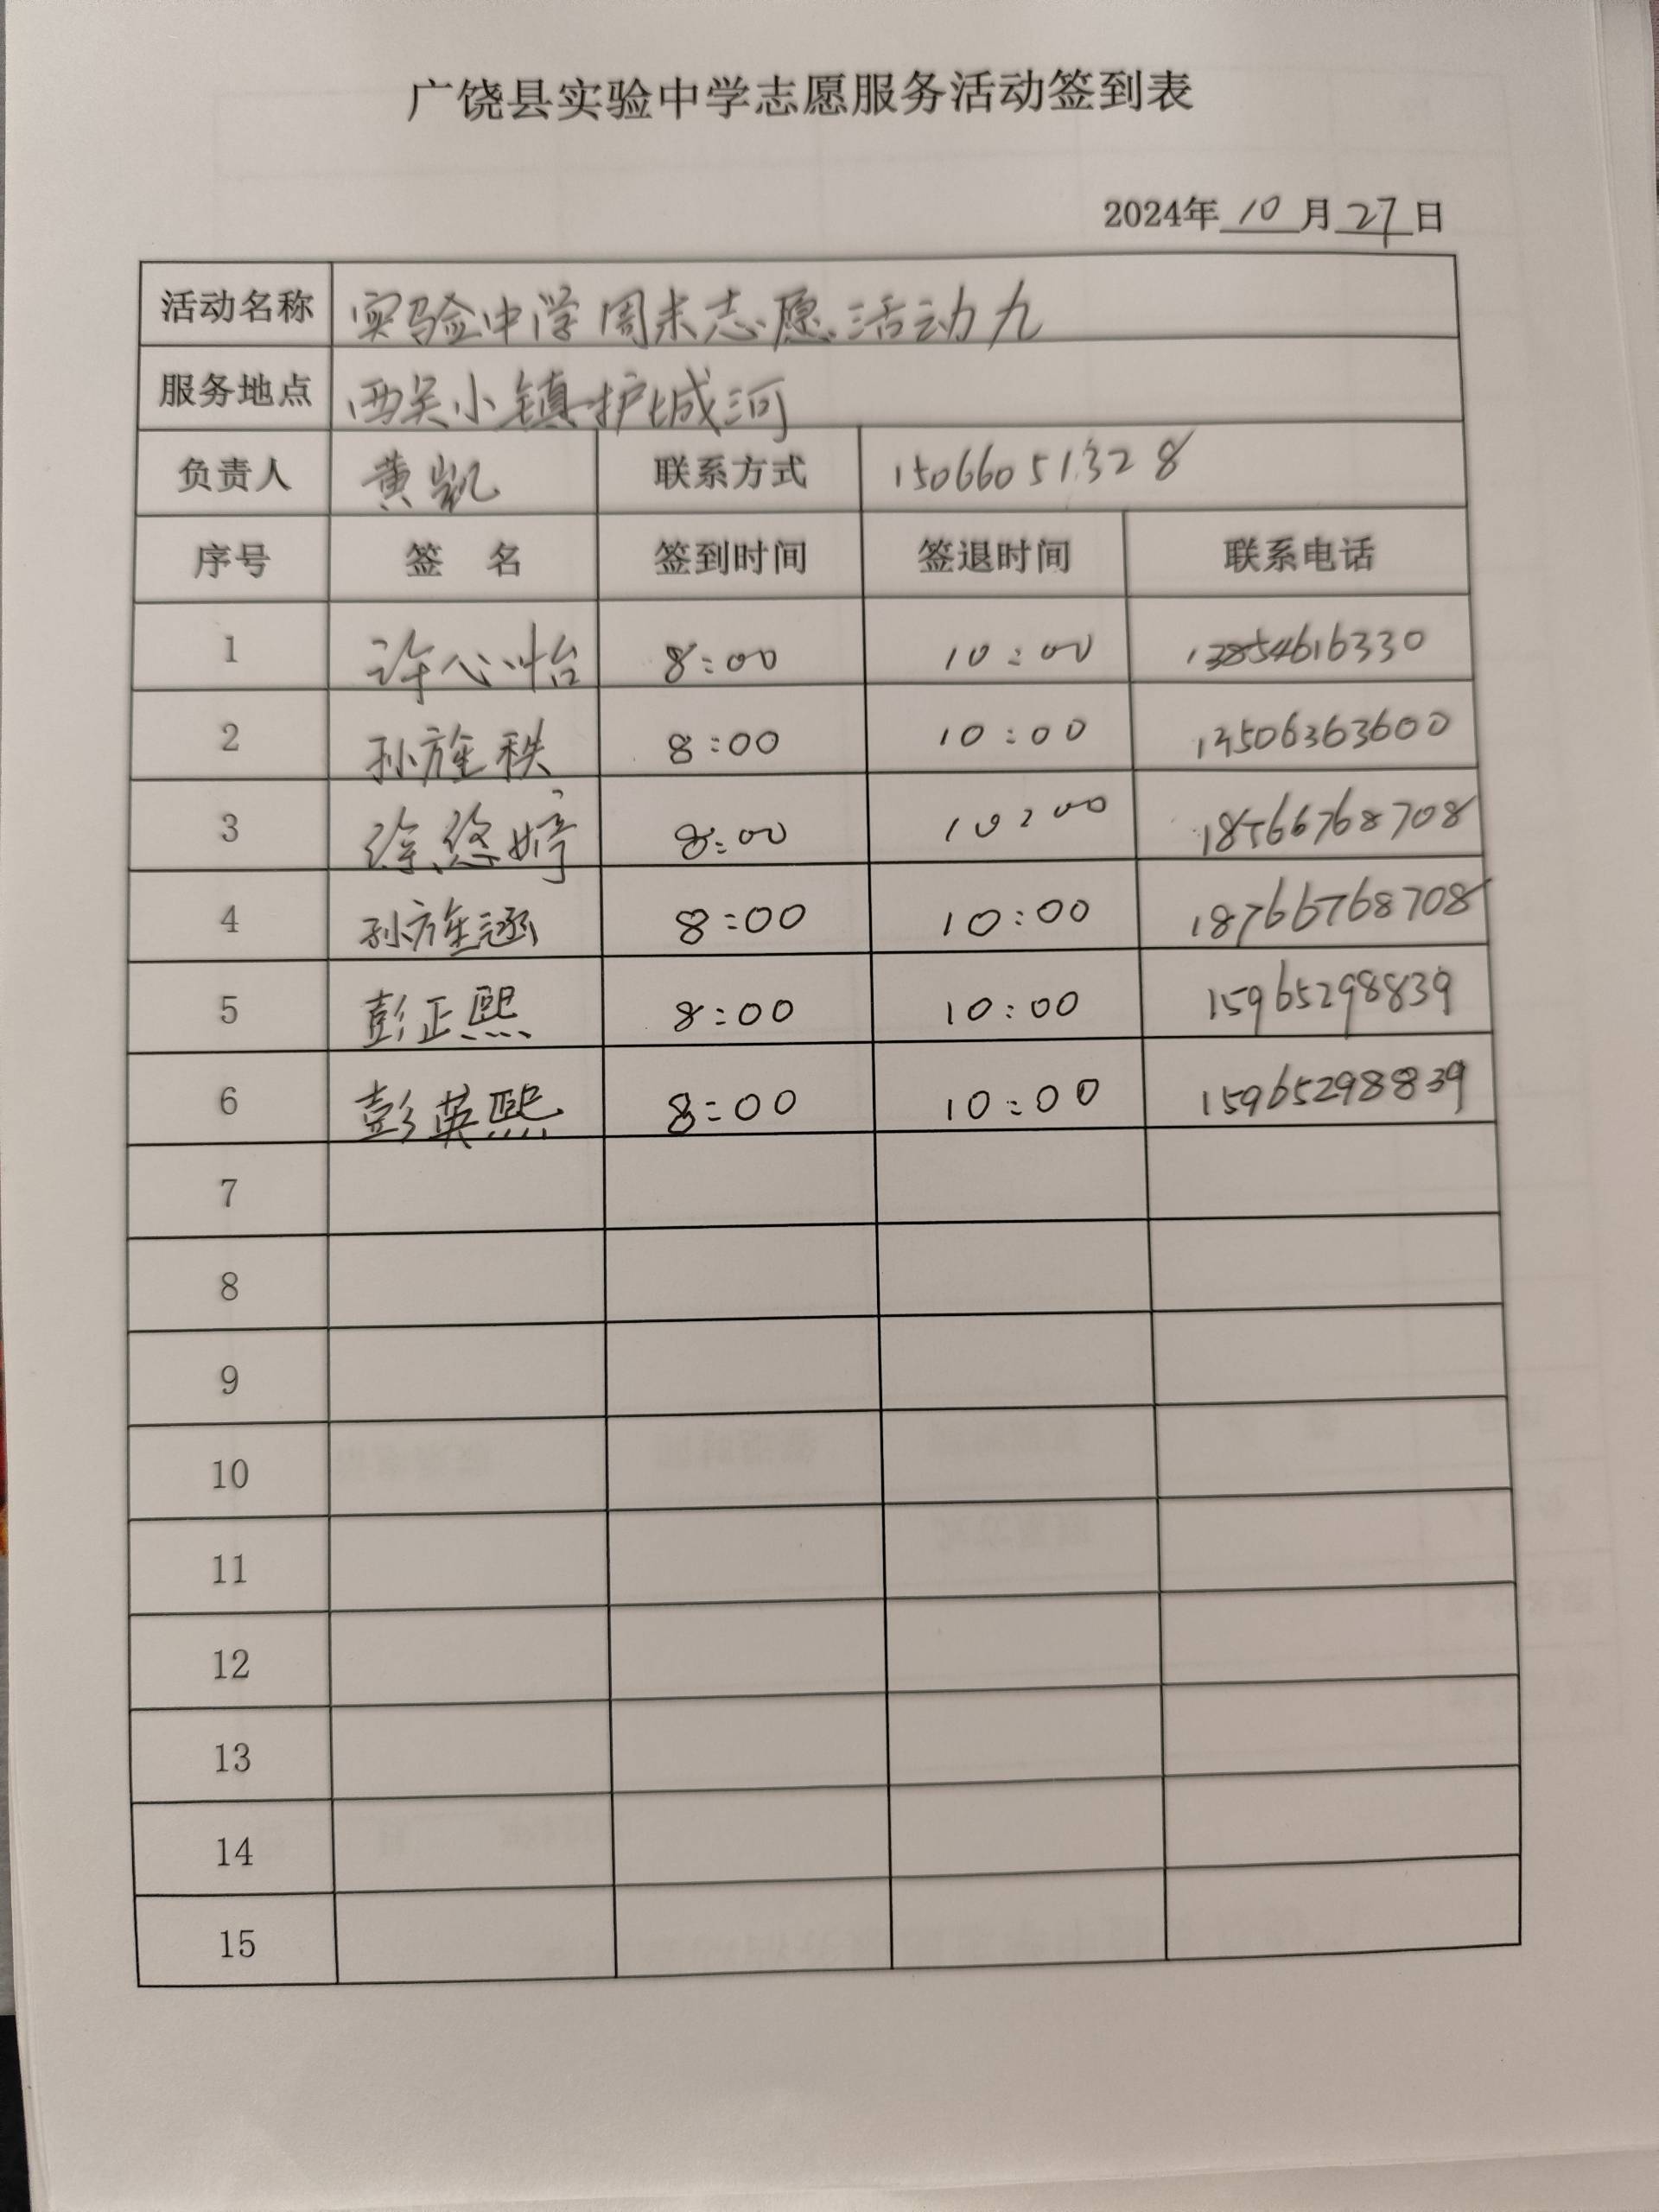 广饶县实验中学志愿服务活动签到表
2024年 10 月 27 日
活动名称 实验中学周末志愿活动九
服务地点 西吴小镇护城河
负责人 黄凯 联系方式 15066051328
序号 签 名 签到时间 签退时间 联系电话
1 许心怡 8:00 10:00 13854616330
2 孙旌秩 8:00 10:00 13506363600
3 徐悠婷 8:00 10:00 18766768708
4 孙旌涵 8:00 10:00 18766768708
5 彭正熙 8:00 10:00 15965298839
6 彭英熙 8:00 10:00 15965298839
7
8
9
10
11
12
13
14
15